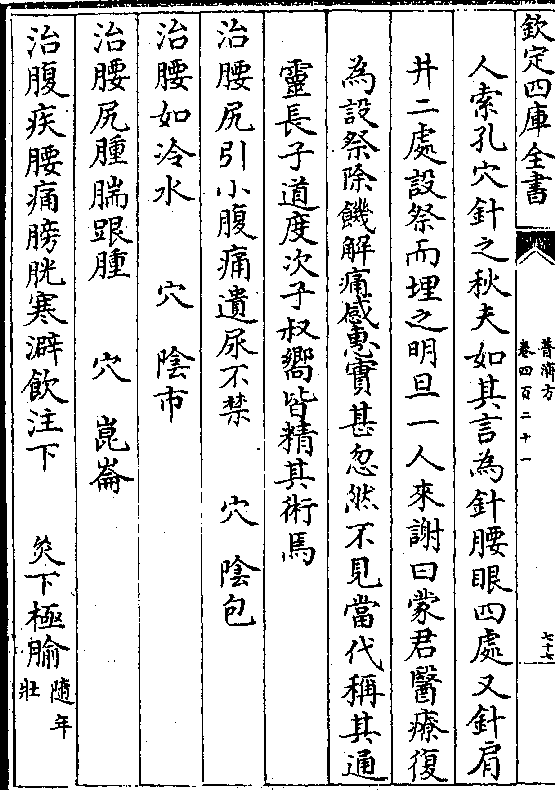 欽定四庫全書
普濟方
卷四百二十一
七十七
人索孔穴針之秋夫如其言為針腰眼四處又針肩
井二處設祭而埋之明旦一人來謝曰蒙君醫療復
為設祭除饑解痛感惠實甚忽然不見當代稱其通
靈長子道度次子叔嚮皆精其術焉
治腰尻引小腹痛遺尿不禁 穴 陰包
治腰如冷水 穴 陰市
治腰尻腫腨跟腫 穴 崑崙
治腹疾腰痛膀胱寒澼飲注下 灸下極腧隨年
壯